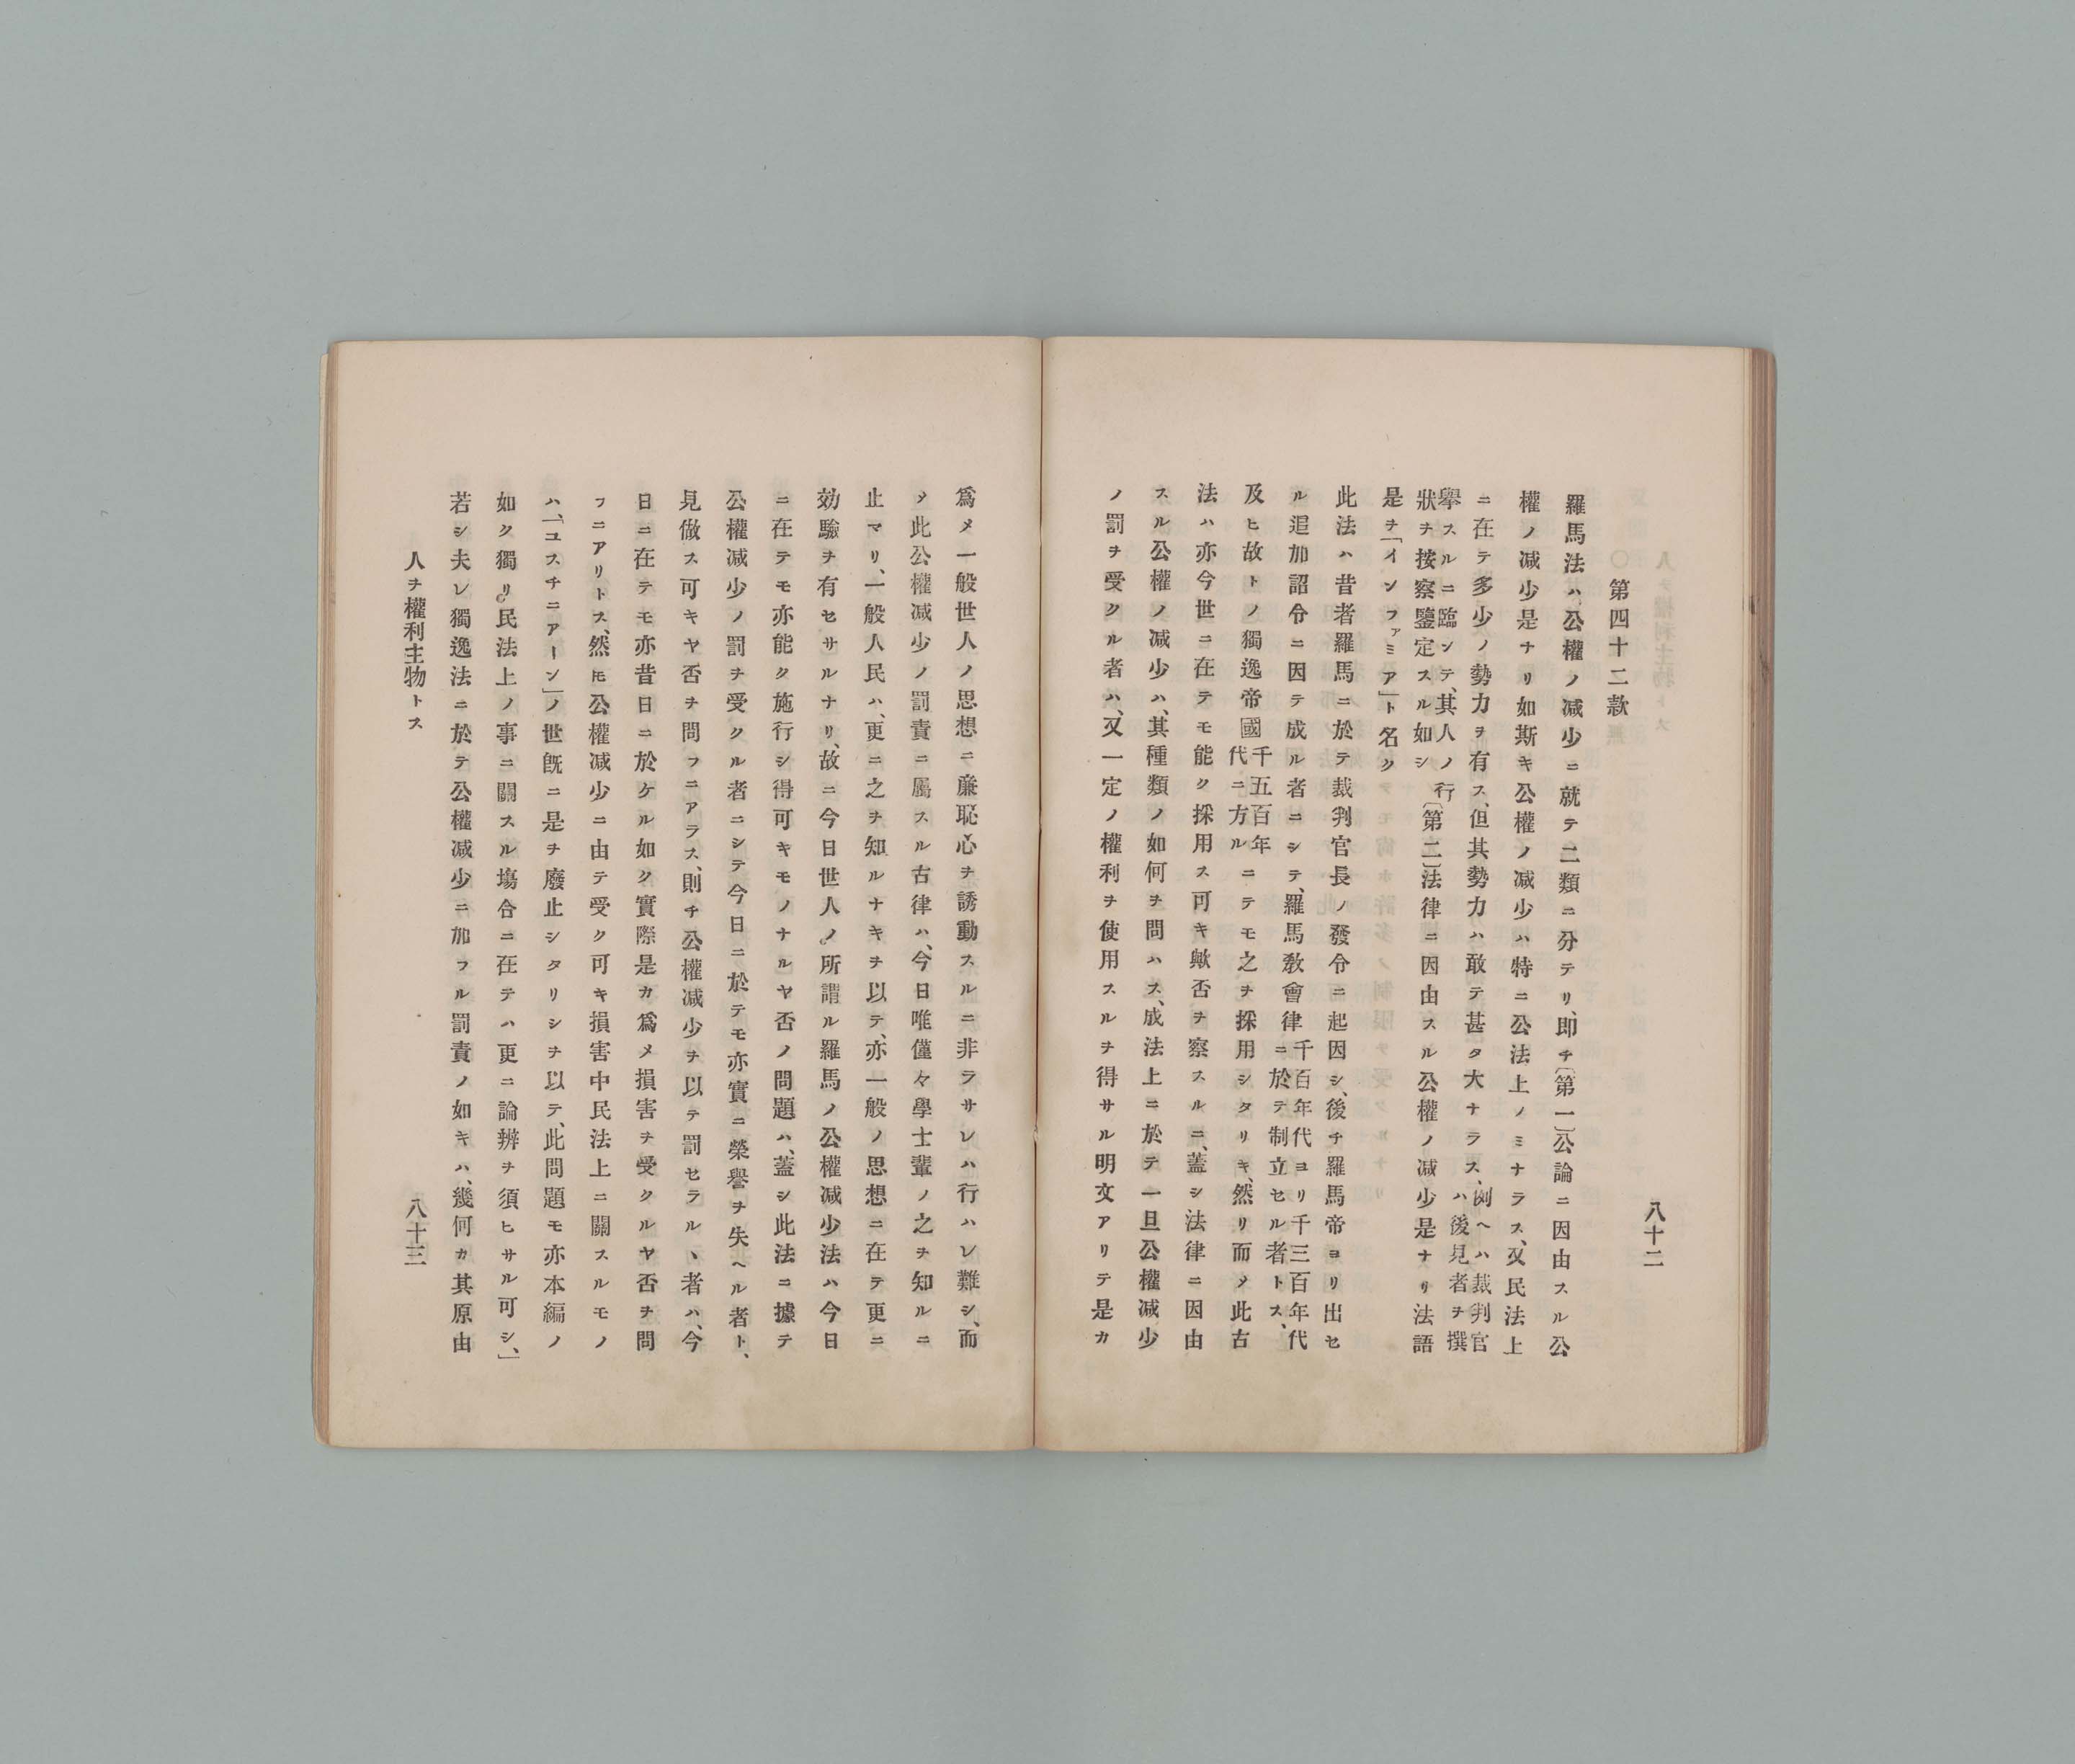 八十二
第四十二款
羅馬法ハ、公權ノ减少ニ就テ二類ニ分テリ、即チ〔第一〕公論ニ因由スル公
權ノ减少是ナリ如斯キ公權ノ减少ハ特ニ公法上ノミナラス、又民法上
ニ在テ多少ノ勢力ヲ有ス、但其勢力ハ敢テ甚タ大ナラス、例ヘハ裁判官
ハ後見者ヲ撰
擧スルニ臨ンテ、其人ノ行
狀ヲ按察鑒定スル如シ
〔第二〕法律ニ因由スル公權ノ减少是ナリ法語
是ヲ「インファミア」ト名ク
此法ハ昔者羅馬ニ於テ裁判官長ノ發令ニ起因シ、後チ羅馬帝ヨリ出セ
ル追加詔令ニ因テ成ル者ニシテ、羅馬敎會律千百年代ヨリ千三百年代
ニ於テ制立セル者トス、
及ヒ故トノ獨逸帝國千五百年
代ニ方ル
ニテモ之ヲ採用シタリキ、然リ而メ此古
法ハ亦今世ニ在テモ能ク採用ス可キ歟否ヲ察スルニ、蓋シ法律ニ因由
スル公權ノ减少ハ、其種類ノ如何ヲ問ハス、成法上ニ於テ一旦公權减少
ノ罰ヲ受クル者ハ、又一定ノ權利ヲ使用スルヲ得サル明文アリテ是カ
爲メ一般世人ノ思想ニ廉恥心ヲ誘動スルニ非ラサレハ行ハレ難シ、而
メ此公權减少ノ罰責ニ屬スル古律ハ、今日唯僅々學士輩ノ之ヲ知ルニ
止マリ、一般人民ハ、更ニ之ヲ知ルナキヲ以テ、亦一般ノ思想ニ在テ更ニ
効驗ヲ有セサルナリ、故ニ今日世人ノ所謂ル羅馬ノ公權减少法ハ今日
ニ在テモ亦能ク施行シ得可キモノナルヤ否ノ問題ハ、蓋シ此法ニ據テ
公權减少ノ罰ヲ受クル者ニシテ今日ニ於テモ亦實ニ榮譽ヲ失ヘル者ト、
見做ス可キヤ否ヲ問フニアラス、則チ公權减少ヲ以テ罰セラルヽ者ハ、今
日ニ在テモ亦昔日ニ於ケル如ク實際是カ爲メ損害ヲ受クルヤ否ヲ問
フニアリトス、然ㇳモ公權减少ニ由テ受ク可キ損害中民法上ニ關スルモノ
ハ、「ユスチニアーン」ノ世旣ニ是ヲ廢止シタリシヲ以テ、此問題モ亦本編ノ
如ク獨リ民法上ノ事ニ關スル塲合ニ在テハ更ニ論辨ヲ須ヒサル可シ、」
若シ夫レ獨逸法ニ於テ公權减少ニ加フル罰責ノ如キハ、幾何カ其原由
人ヲ權利主物トス
八十三